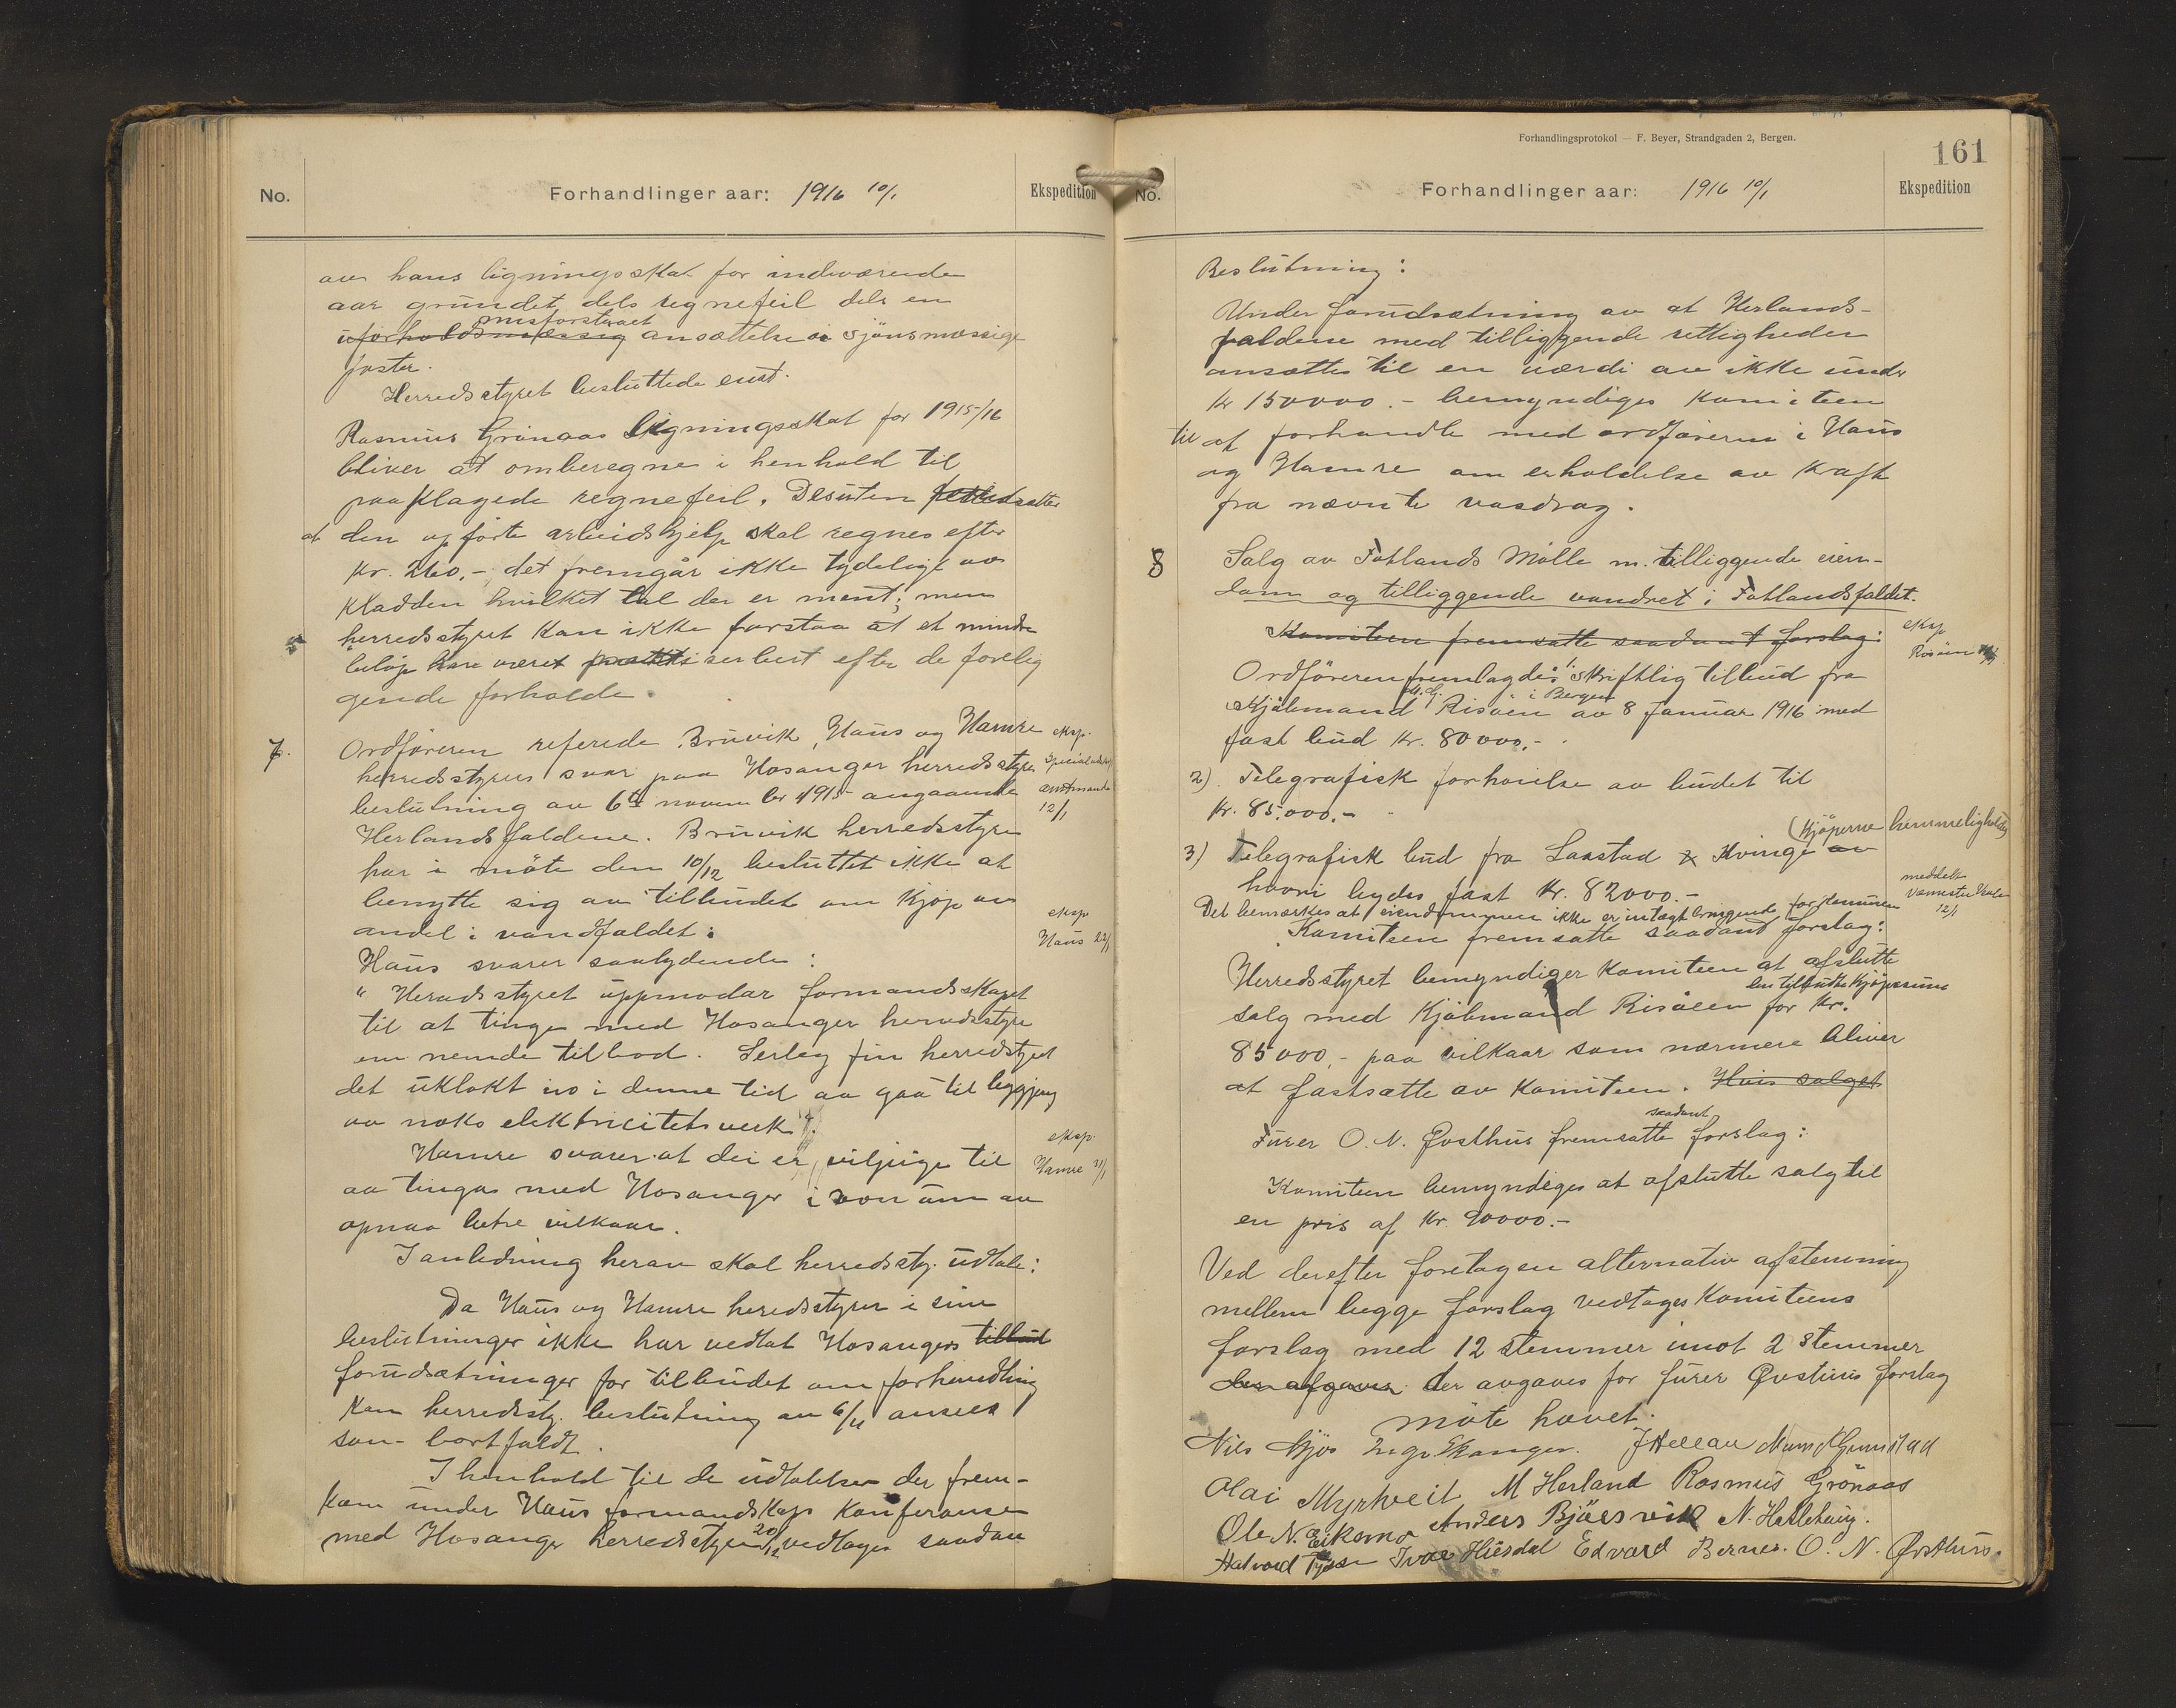 No. Forhandlinger aar: 1916 10/1 Ekspedition
av hans ligningsskat for indværende
aar grundet dels regnefeil dels en
misforstaaet
uforholdsmæssig ansættelse i sjönsmæssige
poster.
Herredsstyret besluttede enst.
Rasmus Grönaas ligningsskat for 1915/16
bliver at omberegne i henhold til
paaklagede regnefeil. Desuten
at den opförte arbeidshjelp skal regnes efter
kr. 260.-; det fremgår ikke tydelige av
kladden hvilket tal der er ment; men
herredsstyret kan ikke forstaa at et mindre
beløp kan været præsteret efter de forelig
gende forholde.
7. Ordföreren referede Bruvik, Haus og Hamre
herredsstyrers svar paa Hosanger herredsstyres
beslutning av 6te november 1915 angaaende
Herlandsfaldene. Bruvik herredsstyre
har i möte den 10/12 besluttet ikke at
benytte sig av tilbudet om kjøp av
andel i vandfaldet.
Haus svarer saalydende:
" Heradsstyret uppmodar formandsskapet
til at tinge med Hosanger herredsstyre
um nemde tilbod. Serleg fin herredstyret
det uklokt no i denne tid aa gaa til byggjing
av noko elektricitetsverk".
Hamre svarer at dei er viljuge til
aa tingas med Hosanger i von um aa
opnaa betre vilkaar.
I anledning herav skal herredssty. udtale:
Da Haus og Hamre heredsstyrer i sine
beslutninger ikke har vedtat Hosangers tilbud
forudsætninger for tilbudet om forhandling
kan herredssty. beslutning av 6/11 ansees
som bortfaldt.
I henhold til de udtalelser der frem-
kom under Haus formandskaps konferanse
med Hosanger herredsstyre 20/12 vedtages saadan
eksp.
amtmand
12/1
eksp
Haus 22/1
eksp.
Hamre 31/1
Forhandlingsprotokol — F. Beyer, Strandgaden 2, Bergen.
161
No. Forhandlinger aar: 1916 10/1 Ekspedition
Beslutning:
Under forudsætning av at Herlands-
faldene med tilliggende rettigheder
ansættes til en værdi av ikke under
kr 150000.- bemyndiges komiteen
til at forhandle med ordförerne i Haus
og Hamre om erholdelse av kraft
fra nævnte vasdrag.
8 Salg av Fotlands Mölle m. tilliggende eien-
dom og tilliggende vandret i Fotlandsfaldet.
Komiteen fremsatte saadant forslag:
Ordföreren fremlagde: 1. skriftlig tilbud fra
i Bergen
Kjöbmand Risöen av 8 Januar 1916 med
fast bud kr. 80000.-
2) Telegrafisk forhöielse av budet til
kr. 85.000.-
(Kjöperne hemmeligholdes)
3) Telegrafisk bud fra Saxstad & Kvinge av
hvori bydes fast kr. 82000.-
Det bemærkes at eiendommen ikke er intægtbringende for kommunen
Komiteen fremsatte saadant forslag:
Herredsstyret bemyndiger komiteen at afslutte
en tilbudte kjöpesum
salg med Kjöbmand Risöen for kr.
85000.- paa vilkaar som nærmere bliver
at fastsætte av komiteen. Hvis salget
saadant
Furer O. N. Østhus fremsatte forslag:
Komiteen bemyndiges at afslutte salg til
en pris af kr. 90000.-
Ved derefter foretagen alternativ afstemning
mellem begge forslag vedtages komiteens
forslag med 12 stemmer imot 2 stemmer
der afgaves der avgaves for furer Østhus forslag
Möte hævet.
eksp
Risöen
meddelt
12/1
Nils Mjös Inge Ekanger.
Olai Myrtveit M Herland Rasmus Grönaas
Ole N. Eikemo Anders Björsvik N. Hatlebvig.
Halvard Tyssen Ivar Hiisdal Edvard Bernes. O. N. Østhus.